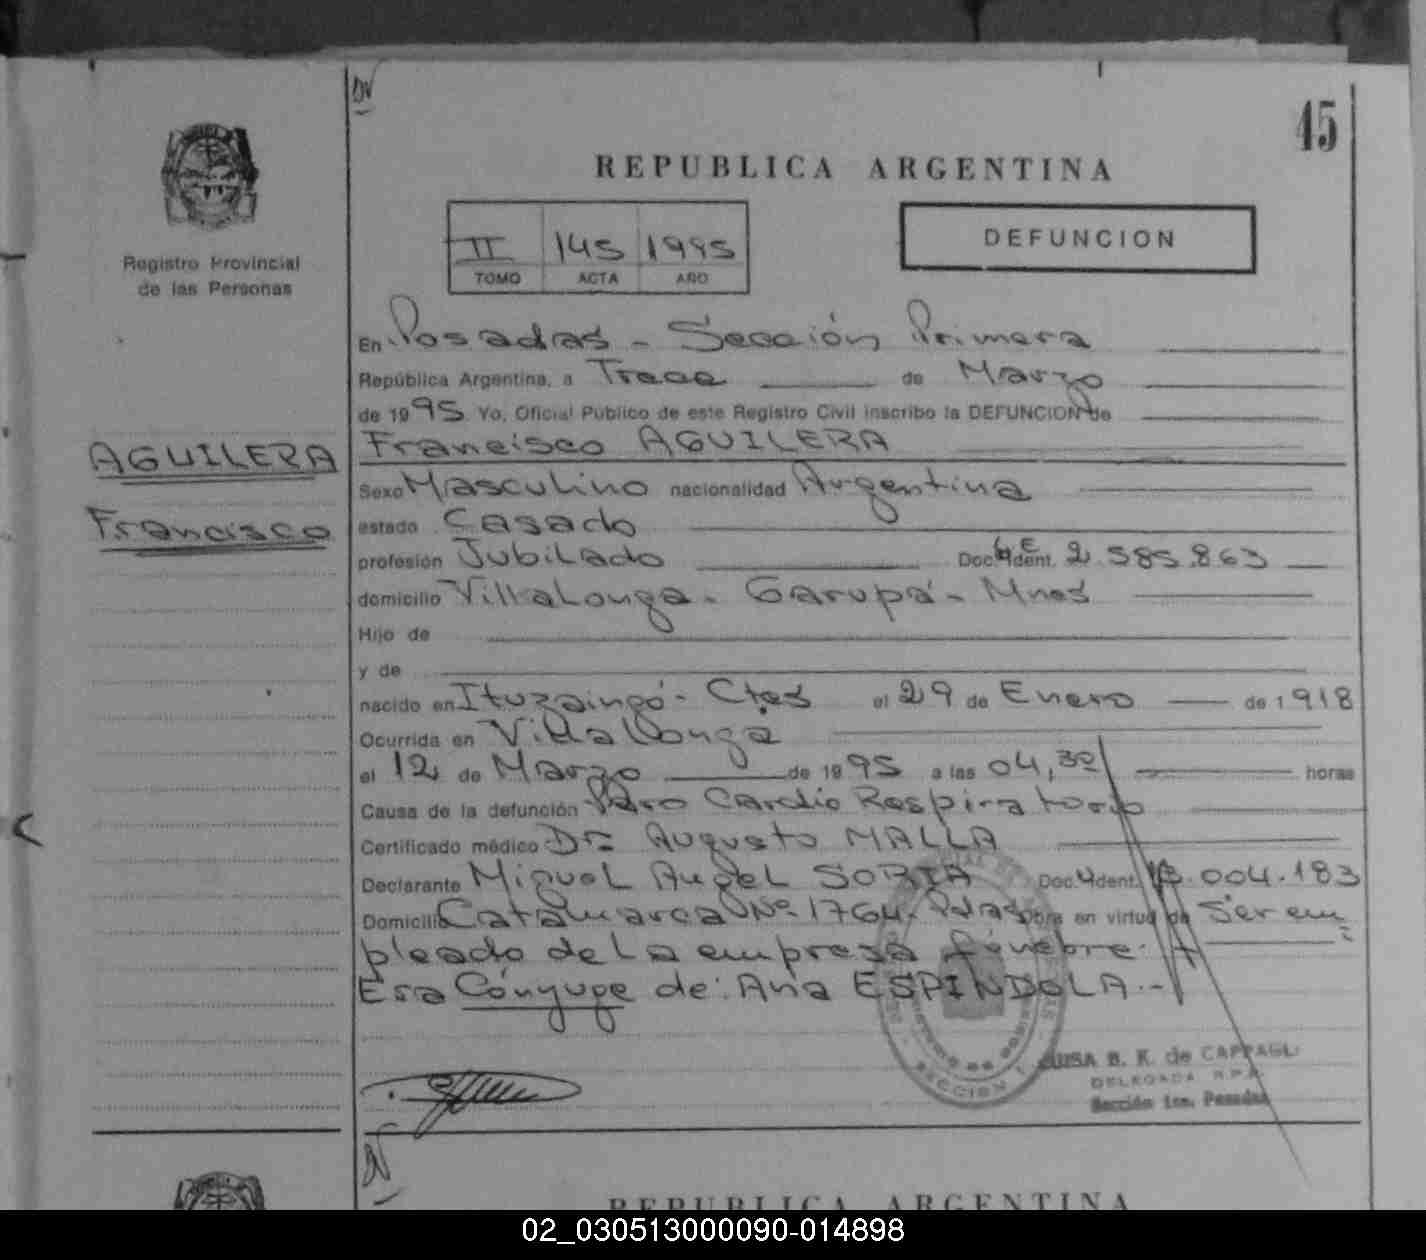 DV
45
REPUBLICA ARGENTINA
Registro Provincial
de las Personas
II 145 1995
TOMO ACTA AÑO
DEFUNCION
En Posadas - Sección Primera
República Argentina, a Trece de Marzo
de 1995 Yo, Oficial Público de este Registro Civil inscribo la DEFUNCION de
AGUILERA
Francisco
Francisco AGUILERA
Sexo Masculino nacionalidad Argentina
estado Casado
profesión Jubilado Doc. Ident. 2.585.863
domicilio Villalonga - Garupá - Mnes
Hijo de
y de
nacido en Ituzaingó - Ctes el 29 de Enero de 1918
Ocurrida en Villalonga
el 12 de Marzo de 1995 a las 04,30 horas
Causa de la defunción Paro Cardio Respiratorio
Certificado médico Dr. Augusto MALLA
Declarante Miguel Angel SORIA Doc. Ident. 13.004.183
Domicilio Catamarca Nº 1764. Pdas Obra en virtud de Ser em
pleado de la empresa fúnebre.
Era Cónyuge de: Ana ESPINDOLA.-
B. K. de CAPPAGLI
DELEGADA R.P.P.
Sección 1ra. Posadas
SECCION 1
REPUBLICA ARGENTINA
02_030513000090-014898